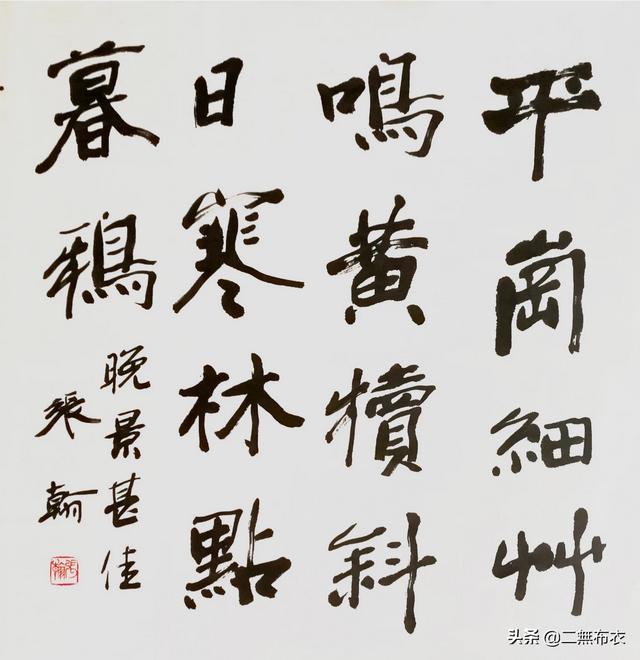 平崗細艸
鳴黃犢斜
日寒林點
暮鴉
晚景甚佳
張翰
張翰
头条 @二無布衣